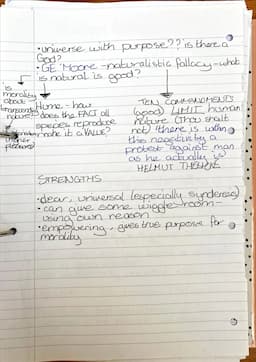 • universe with purpose?? is there a
God?
• GE Moore - naturalistic fallacy - what
is natural is good?
is
morality
about
transcending
nature?
Hume - how
does the FACT all
species reproduce
make it a VALUE?
higher
pleasures
TEN COMMANDMENTS
(good) LIMIT human
nature (Thou shalt
not) "there is within
this negativity a
protest against man
as he actually is"
HELMUT THIELICKE
STRENGTHS
• clear, universal (especially synderesis)
• can give some wiggle-room -
using own reason
• empowering - gives true purpose for
morality